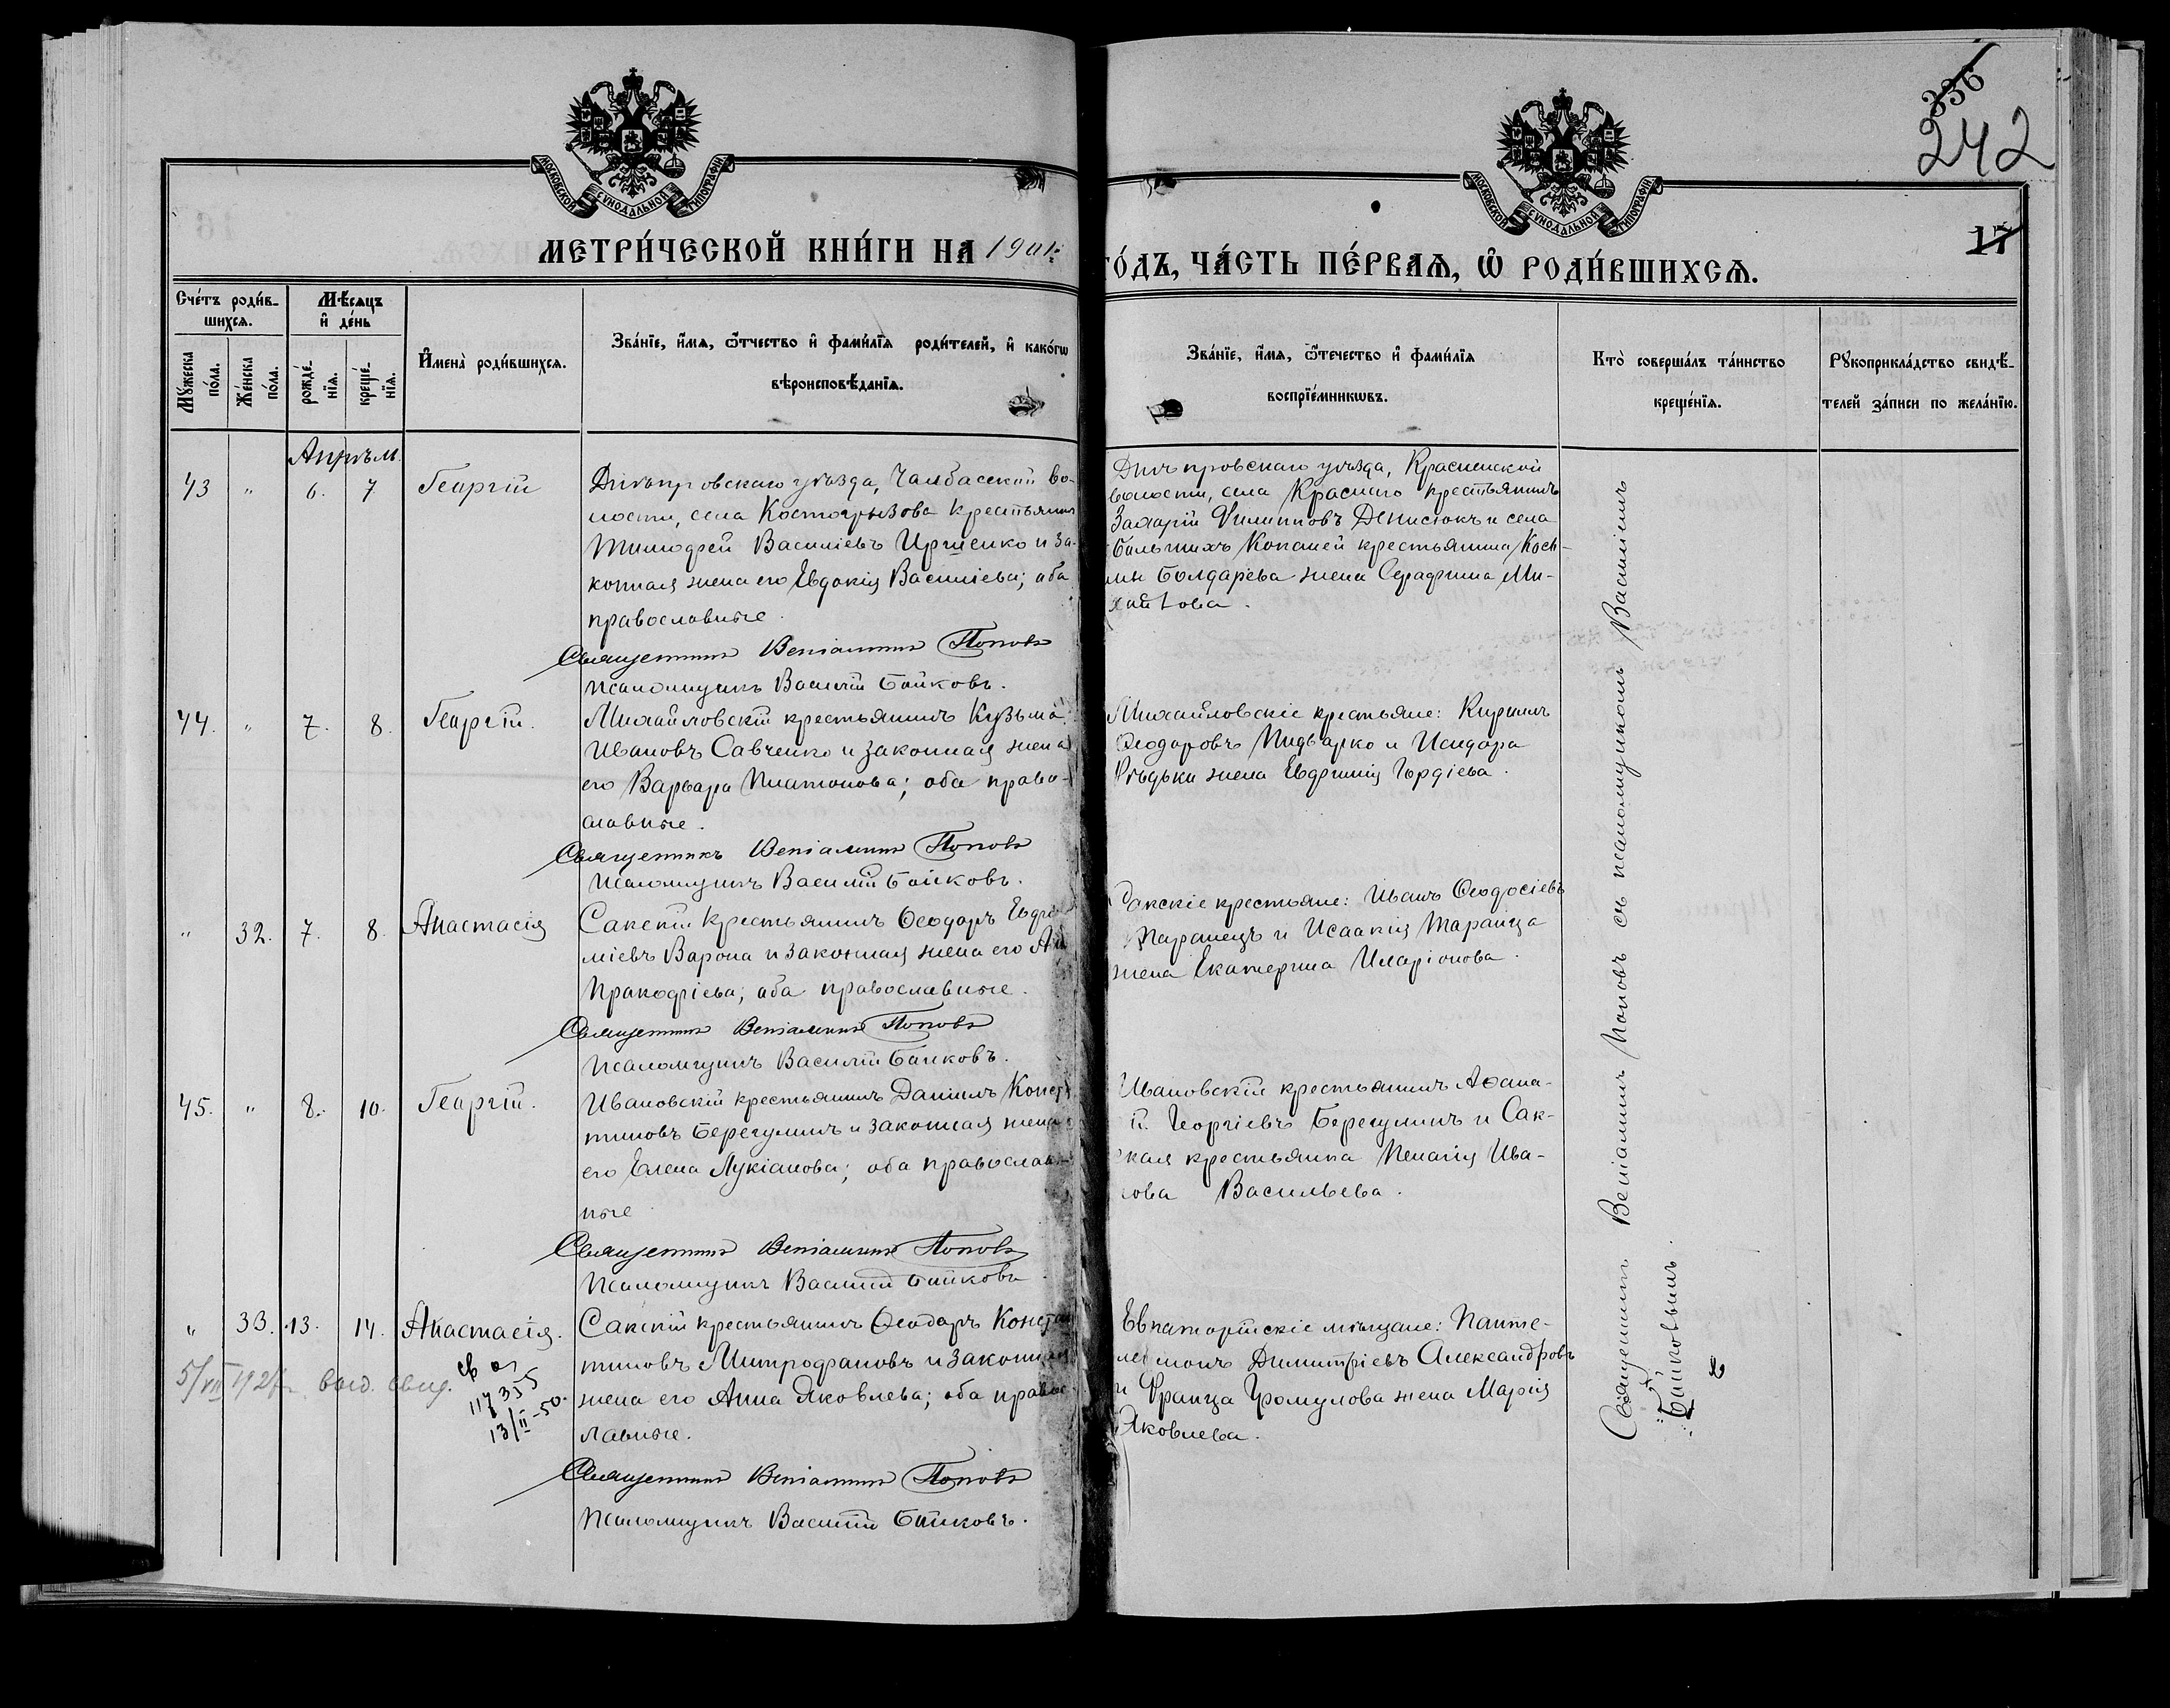 336
242
17
МОСКОВСКОЙ СѴНОДАЛЬНОЙ ТИПОГРАФІИ
МОСКОВСКОЙ СѴНОДАЛЬНОЙ ТИПОГРАФІИ
МЕТРИ́ЧЕСКОЙ КНИ́ГИ НА 1901 г.
ГО́ДЪ, ЧА́СТЬ ПЕ́РВАѦ, Ѽ РОДИ́ВШИХСѦ.
Сче́тъ роди́в-
шихсѧ.
Мꙋжеска по́ла.
Же́нска по́ла.
Мѣ́сѧцъ и҆ де́нь
рожде́-нїѧ.
креще́-нїѧ.
И҆мена̀ роди́вшихсѧ.
Зва́нїе, и҆́мѧ, ѻ҆́тчество и҆ фами́лїѧ роди́телей, и҆ како́гѡ
вѣроисповѣ́данїѧ.
Зва́нїе, и҆́мѧ, ѻ҆́течество и҆ фами́лїѧ
воспрїе́мникѡвъ.
Кто̀ соверша́лъ та́инство
креще́нїѧ.
Рꙋкоприкла́дство свидѣ́-
телей за́писи по жела́нїю.
Апрѣль.
43 " 6. 7 Георгій
Днѣпровскаго уѣзда, Чалбасской во-
лости, села Костогрызова крестьянинъ
Тимофей Васильевъ Ирщенко и за-
конная жена его Евдокія Васильева; оба
православные.
Священникъ Веніаминъ Поповъ
Псаломщикъ Василій Байковъ.
Днѣпровскаго уѣзда, Красненской
волости, села Краснаго крестьянинъ
Захарій Филипповъ Денисюкъ и села
Большихъ Копаней крестьянина Кось-
мы Болдарева жена Серафима Ми-
хайлова.
44. " 7. 8. Георгій.
Михайловскій крестьянинъ Кузьма
Ивановъ Савченко и законная жена
его Варвара Платонова; оба право-
славные.
Священникъ Веніаминъ Поповъ
Псаломщикъ Василій Байковъ.
Михайловскіе крестьяне: Кириллъ
Ѳеодоровъ Пидварко и Исидора
Рѣдьки жена Евфимія Гордіева.
" 32. 7. 8. Анастасія
Сакскій крестьянинъ Ѳеодоръ Евфи-
міевъ Варона и законная жена его
Прокофіева; оба православные.
Священникъ Веніаминъ Поповъ
Псаломщикъ Василій Байковъ.
Сакскіе крестьяне: Иванъ Ѳеодосіевъ
Таранецъ и Исаакія Таранца
жена Екатерина Иларіонова.
45. " 8. 10. Георгій.
Ивановскій крестьянинъ Даніилъ Конста
тиновъ Берегулинъ и законная жена
его Елена Лукіанова; оба православ-
ные
Священникъ Веніаминъ Поповъ
Псаломщикъ Василій Байковъ.
Ивановскій крестьянинъ Аѳана-
ій Георгіевъ Берегулинъ и Сак-
ская крестьянка Пелагія Ива-
нова Васильева.
" 33. 13. 14. Анастасія.
Сакскій крестьянинъ Ѳеодоръ Констан
тиновъ Митрофановъ и законная
жена его Анна Яковлева; оба правос-
лавные.
Священникъ Веніаминъ Поповъ
Псаломщикъ Василій Байковъ.
Евпаторійскіе мѣщане: Панте-
леимонъ Димитріевъ Александровъ
и Франца Громулова жена Марія
Яковлева.
выд. свид.
117355
13/II-50.
Священникъ Веніаминъ Поповъ съ псаломщикомъ Василіемъ
Байковымъ.